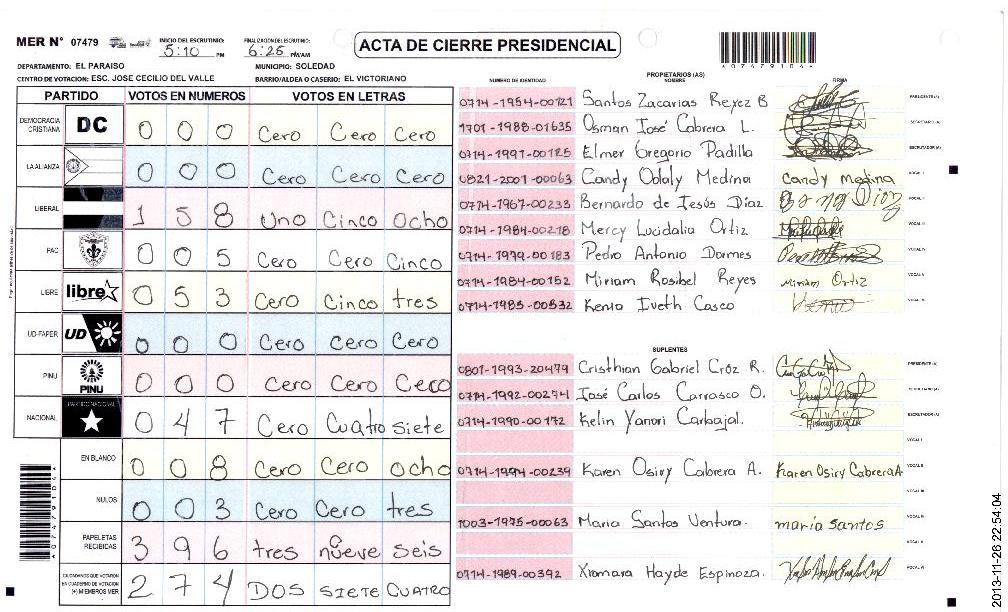 MER N° 07479 INICIO DEL ESCRUTINIO: 5:10 PM FINALIZACION DEL ESCRUTINIO: 6:25 PM/AM
ACTA DE CIERRE PRESIDENCIAL
DEPARTAMENTO: EL PARAISO MUNICIPIO: SOLEDAD
CENTRO DE VOTACION: ESC. JOSE CECILIO DEL VALLE BARRIO/ALDEA O CASERIO: EL VICTORIANO
PARTIDO VOTOS EN NUMEROS VOTOS EN LETRAS
DEMOCRACIA CRISTIANA DC 0 0 0 Cero Cero Cero
LA ALIANZA 0 0 0 Cero Cero Cero
LIBERAL 1 5 8 Uno Cinco Ocho
PAC 0 0 5 Cero Cero Cinco
LIBRE libre 0 5 3 Cero Cinco tres
UD-FAPER UD 0 0 0 Cero Cero Cero
PINU PINU 0 0 0 Cero Cero Cero
NACIONAL PARTIDO NACIONAL 0 4 7 Cero Cuatro siete
EN BLANCO 0 0 8 Cero Cero Ocho
NULOS 0 0 3 Cero Cero tres
PAPELETAS RECIBIDAS 3 9 6 tres nueve seis
CIUDADANOS QUE VOTARON EN CUADERNO DE VOTACION (+) MIEMBROS MER 2 7 4 DOS SIETE CUATRO
PROPIETARIOS (AS)
NUMERO DE IDENTIDAD NOMBRE FIRMA
0714-1954-00121 Santos Zacarias Reyez B PRESIDENTE(A)
1701-1988-01635 Osman José Cabrera L. SECRETARIO (A)
0714-1991-00125 Elmer Gregorio Padilla ESCRUTADOR (A)
0821-2001-00063 Candy Odaly Medina Candy Medina VOCAL I
0714-1967-00233 Bernardo de Jesús Díaz VOCAL II
0714-1984-00218 Mercy Lucidalia Ortiz VOCAL III
0714-1979-00183 Pedro Antonio Dormes VOCAL IV
0714-1984-00152 Miriam Rosibel Reyes Miriam Ortiz VOCAL V
0714-1985-00532 Kenia Iveth Casco
SUPLENTES
0801-1993-20479 Cristhian Gabriel Cróz R. PRESIDENTE (A)
0714-1992-00274 José Carlos Carrasco O. SECRETARIO (A)
0714-1990-00172 Kelin Yanori Carbajal. ESCRUTADOR (A)
VOCAL I
0714-1994-00239 Karen Osiry Cabrera A. Karen Osiry Cabrera A VOCAL II
VOCAL III
1003-1975-00063 Maria Santos Ventura. maria santos VOCAL IV
VOCAL V
0714-1989-00392 Xiomara Hayde Espinoza. VOCAL VI
2013-11-26 22:54:04